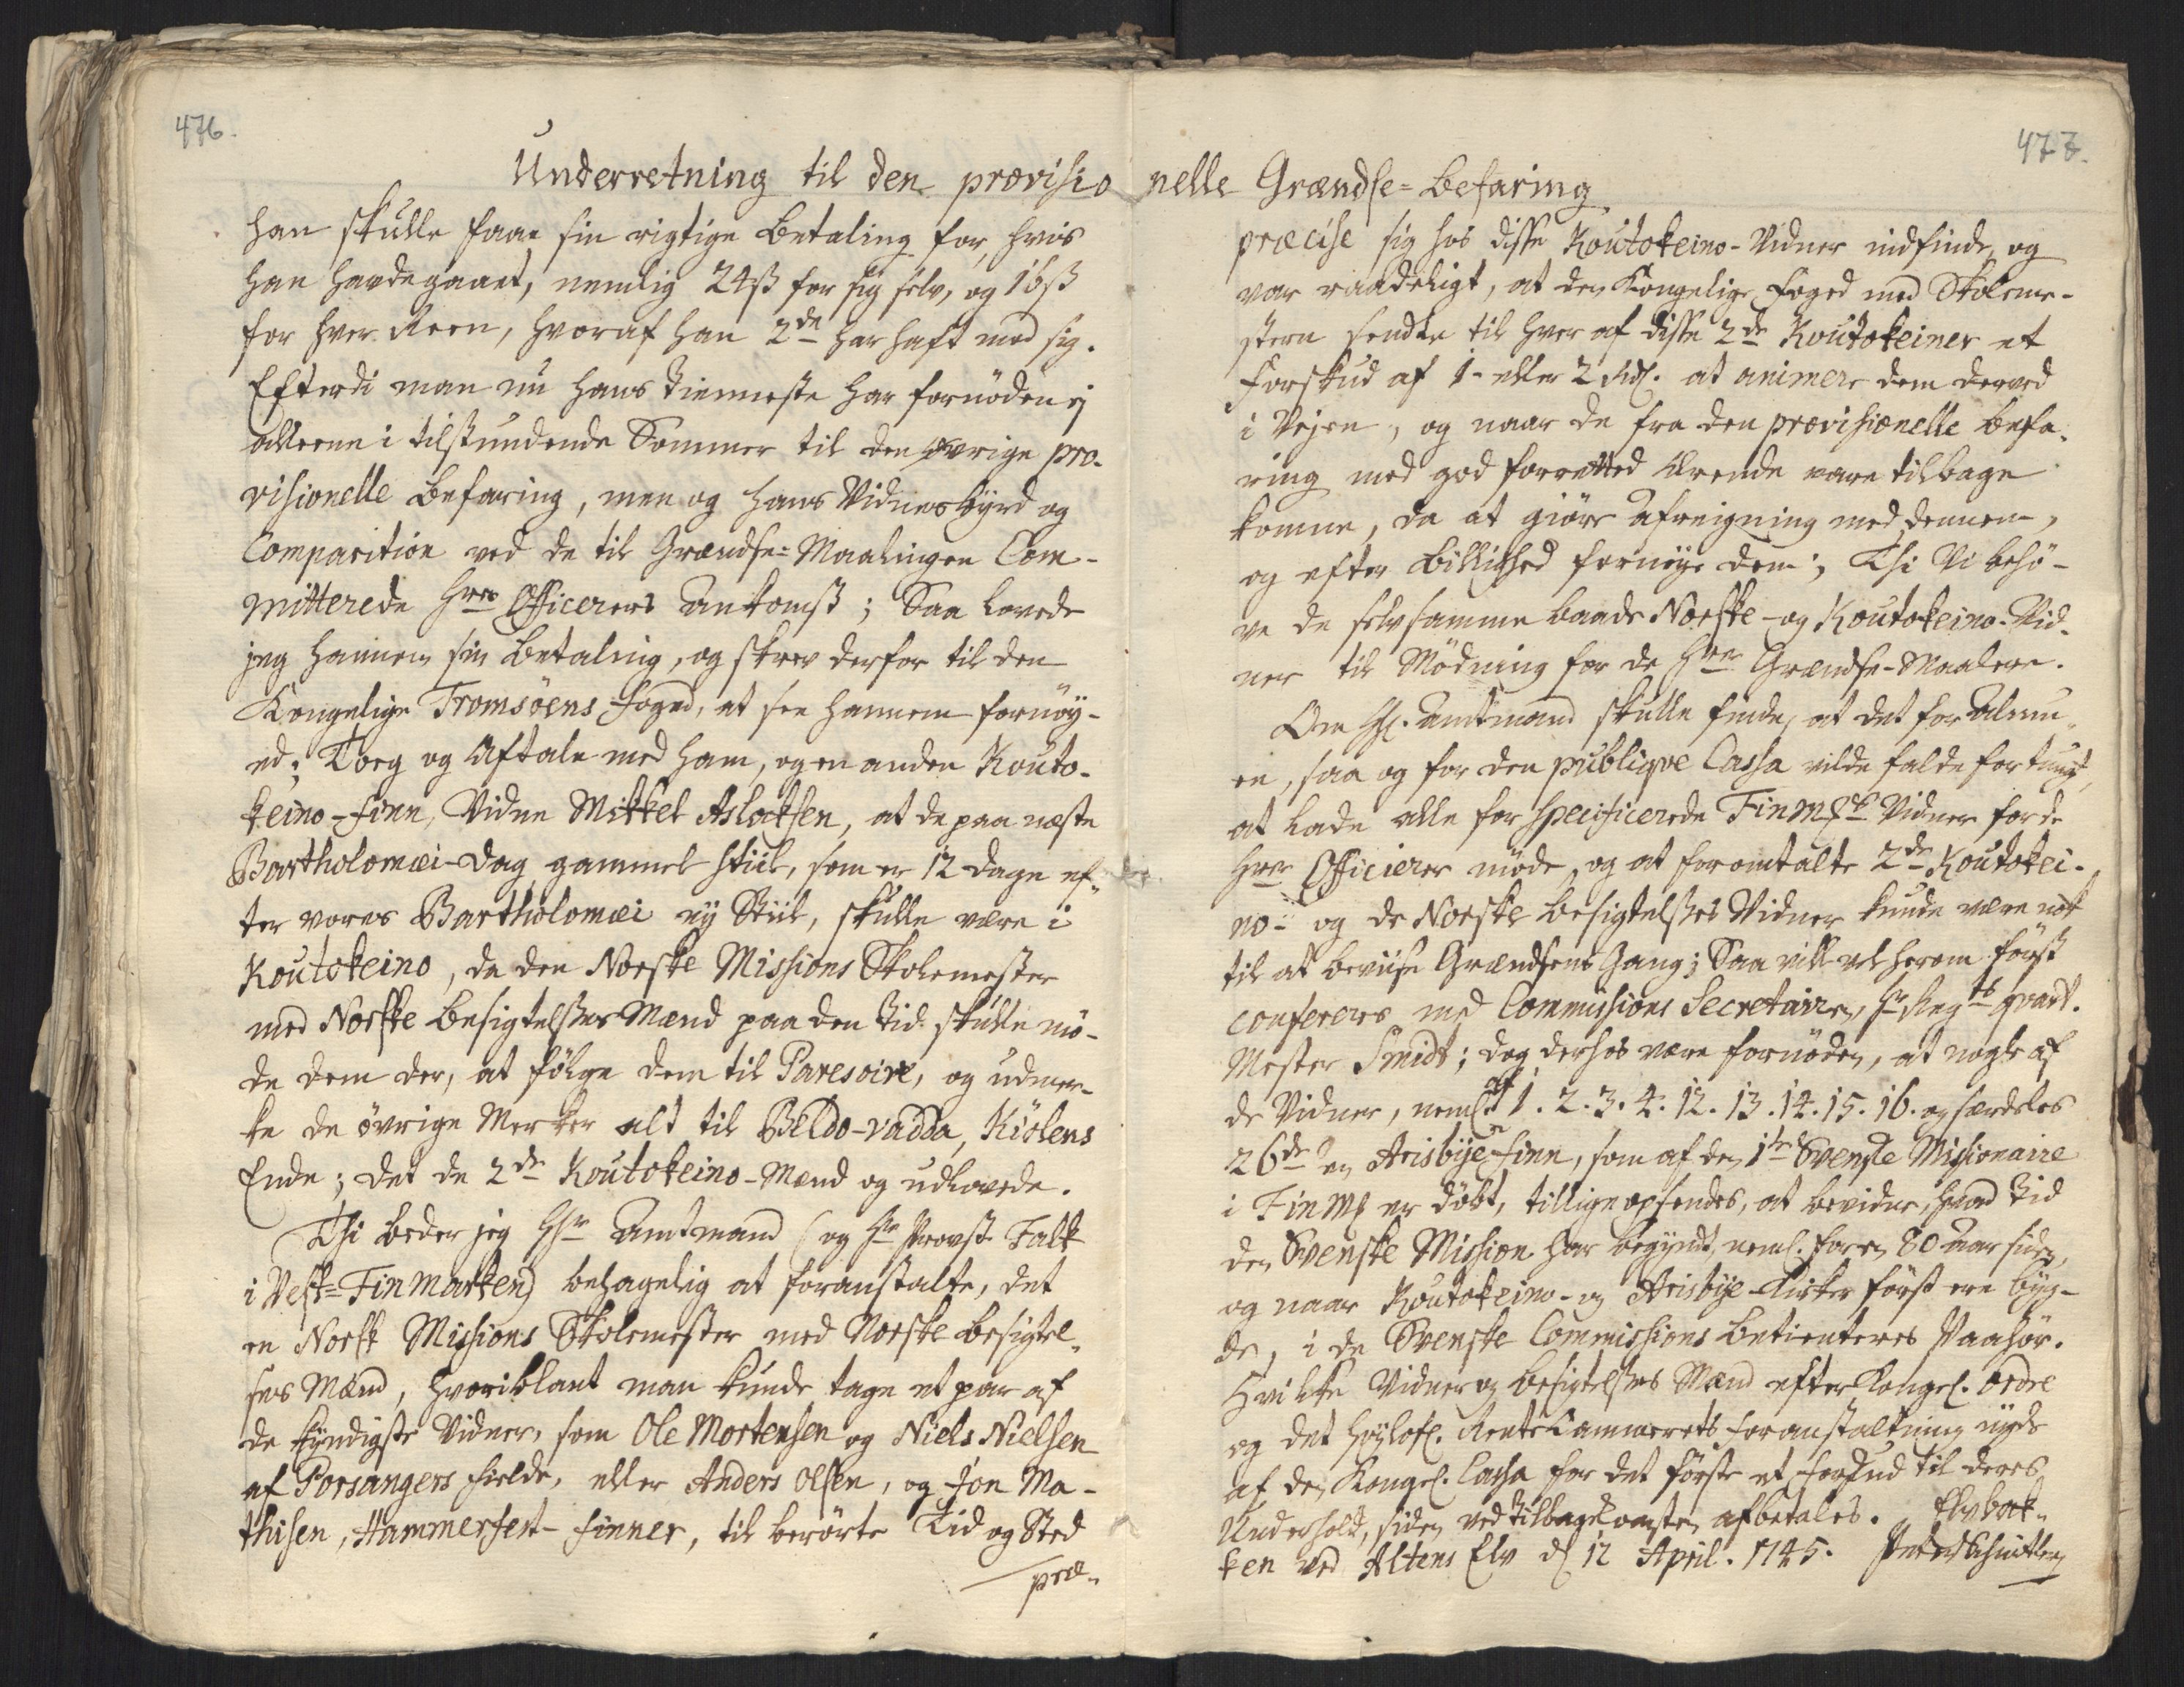 476.
477.
Underretning til den provisionelle Grændse-befaring
han skulle faae sin rigtige Betaling for, hvis
han havde gaaet, nemlig 24ß for sig selv, og 16ß
for hver Reen, hvoraf han 2de har haft med sig.
Efterdi man nu hans Tienneste har fornöden ej
alleene i tilstundende Sommer til den övrige pro-
visionelle Befaring, men og hans Vidnesbyrd og
Comparition ved de til Grændse-Maalingen Com-
mitterede Hrrs Officerers Ankomst; Saa lovede
jeg hannem sin Betaling, og skrev derfor til den
Kongelige Tromsöens foged, at see hannem fornöy-
ed; Toeg og Aftale med ham, og en anden Kouto-
keino-finn, Vidne Mikkel Aslaksen, at de paa næste
Bartholomæi-Dag gammel Stiil, som er 12 Dage ef-
ter vores Bartholomæi ny Stiil, skulle være i
Koutokeino, da den Norske Missions Skolemester
med Norske besigtelses Mænd paa den Tid skulle mö-
de dem der, at fölge dem til Paresoive, og udmer-
ke de övrige Merker alt til Beldo-vadda, Kiölens
Ende; Det de 2de Koutokeino-Mænd og udlovede.
Thi beder jeg Hr Amtmand (og Hr Provst Falk
i Vest-Finmarken) behagelig at foranstalte, det
en Norsk Missions Skolemester med Norske besigtel-
ses Mænd, hvoriblant man kunde tage et par af
de kyndigste Vidner, som Ole Mortensen og Niels Nielsen
af Porsangers fielde, eller Anders Olsen, og Jon Ma-
thisen, Hammerfest-finner, til berörte Tid og Sted
præ-
præcise sig hos disse Koutokeino-Vidner indfinde, og
var raadeligt, at den Kongelige foged med Skoleme-
stern sendte til hver af disse 2de Koutokeiner et
Forskud af 1- eller 2 Rdl. at animere dem derved
i Vejen, og naar de fra den provisionelle befa-
ring med god forrettet Ærende vare tilbage
komne, da at giöre Afreigning med dennem,
og efter billighed fornöye dem; Thi Vi behö-
ve de selvsamme baade Norske- og Koutokeino-Vid-
ner til Mödning for de Hrer Grændse-Maalere.
Om Hr. Amtmand skulle finde, at det for Almu-
en, saa og for den publiqve Cassa vilde falde for tungt,
at lade alle for specificerede Finmkes Vidner for de
Hrer Officierer möde, og at foromtalte 2de Koutokei-
no- og de Norske besigtelses Vidner kunde være nok
til at beviise Grændsens Gang; Saa vill vel herom först
confereres med Commissions Secretairen, Hr Reg.ts qvart.
Mester Smidt; dog derhos være fornöden, at nogle af
de Vidner, neml. 1. 2. 3. 4. 12. 13. 14. 15. 16. og særdeles
26de en Arisbye finn, som af den 1te Svenske Missionaire
i Finmk er döbt, tillige opsendes, at bevidne, hvad Tid
den Svenske Mission har begyndt, neml. for en 80 Aar siden,
og naar Koutokeino- og Arisbye-Kirker först ere byg-
de, i de Svenske Commissions betienteres Paahör.
Hvilke Vidner og besigtelses Mænd efter Kongel. Ordre
og det Höylofl. Rente Cammerets foranstaltning nyde
af den Kongel. Cassa for det förste et forskud til deres
Underhold, siden ved tilbagekomsten afbetales. Elvbak-
ken ved Altens Elv d. 12 April. 1745. Peter Schnitler